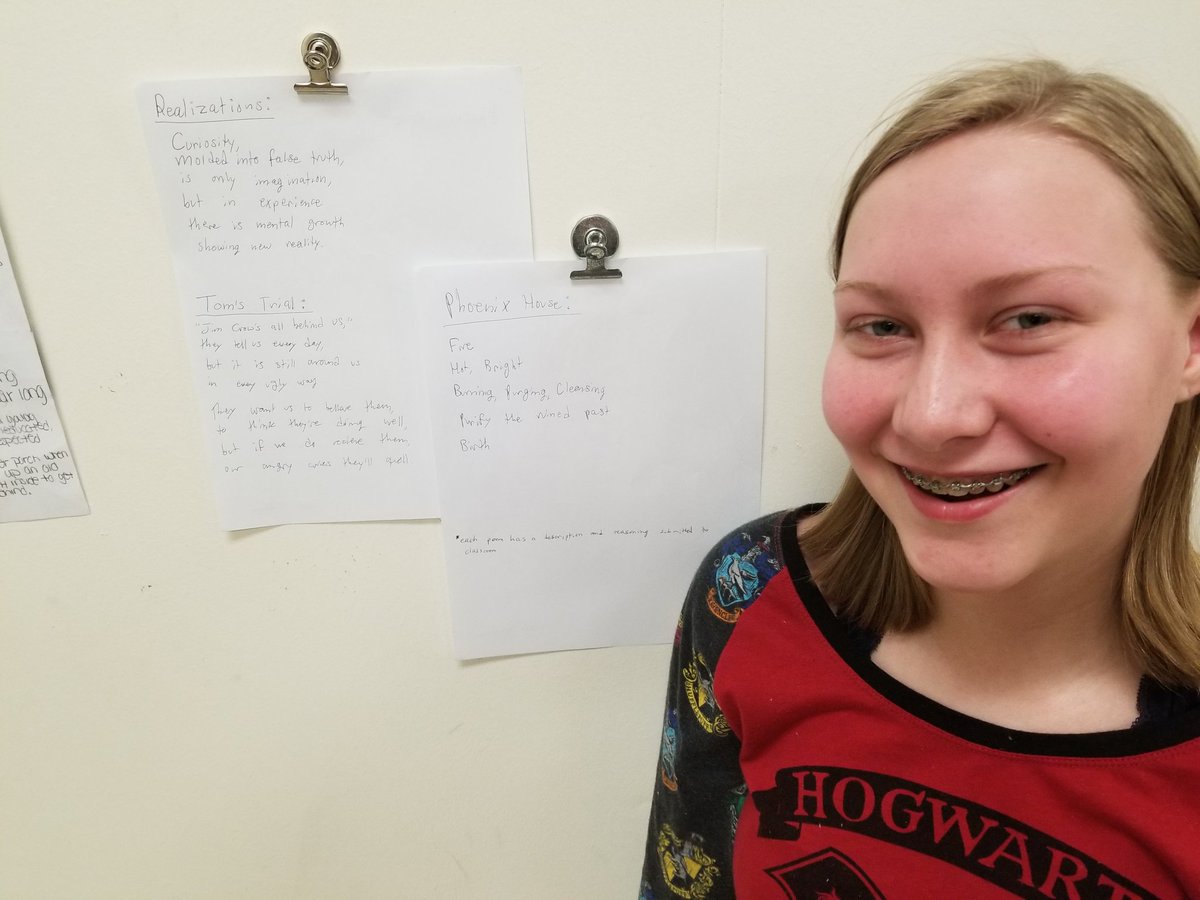 Realizations:
Curiosity,
molded into false truth,
is only imagination,
but in experience
there is mental growth
showing new reality.
Tom's Trial:
"Jim Crow's all behind us,"
they tell us every day,
but it is still around us
in every ugly way.
They want us to believe them,
to think they're doing well,
but if we do recieve them,
our angry cries they'll quell.
Phoenix House:
Fire
Hot, Bright
Burning, Purging, Cleansing
Purify the ruined past
Birth
*each poem has a description and reasoning submitted to
classroom
long
up an old
inside to get
HOGWART